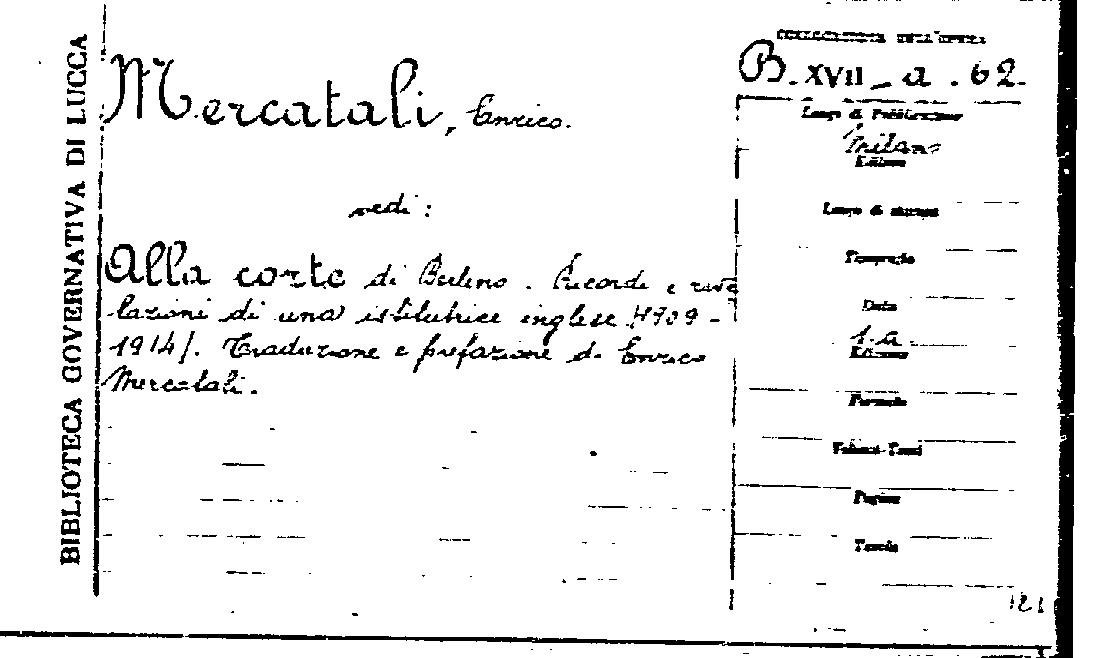 BIBLIOTECA GOVERNATIVA DI LUCCA
Mercatali, Enrico.
vedi:
Alla corte di Berlino. Ricordi e rive
lazioni di una istitutrice inglese /1909-
1914/. Traduzione e prefazione di Enrico
Mercatali.
COLLOCAZIONE DELL'OPERA
B. XVII - a. 62.
Luogo di Pubblicazione
Milano
Editore
Luogo di stampa
Tipografo
Data
1.a
Edizione
Formato
Volumi-Tomi
Pagine
Tavole